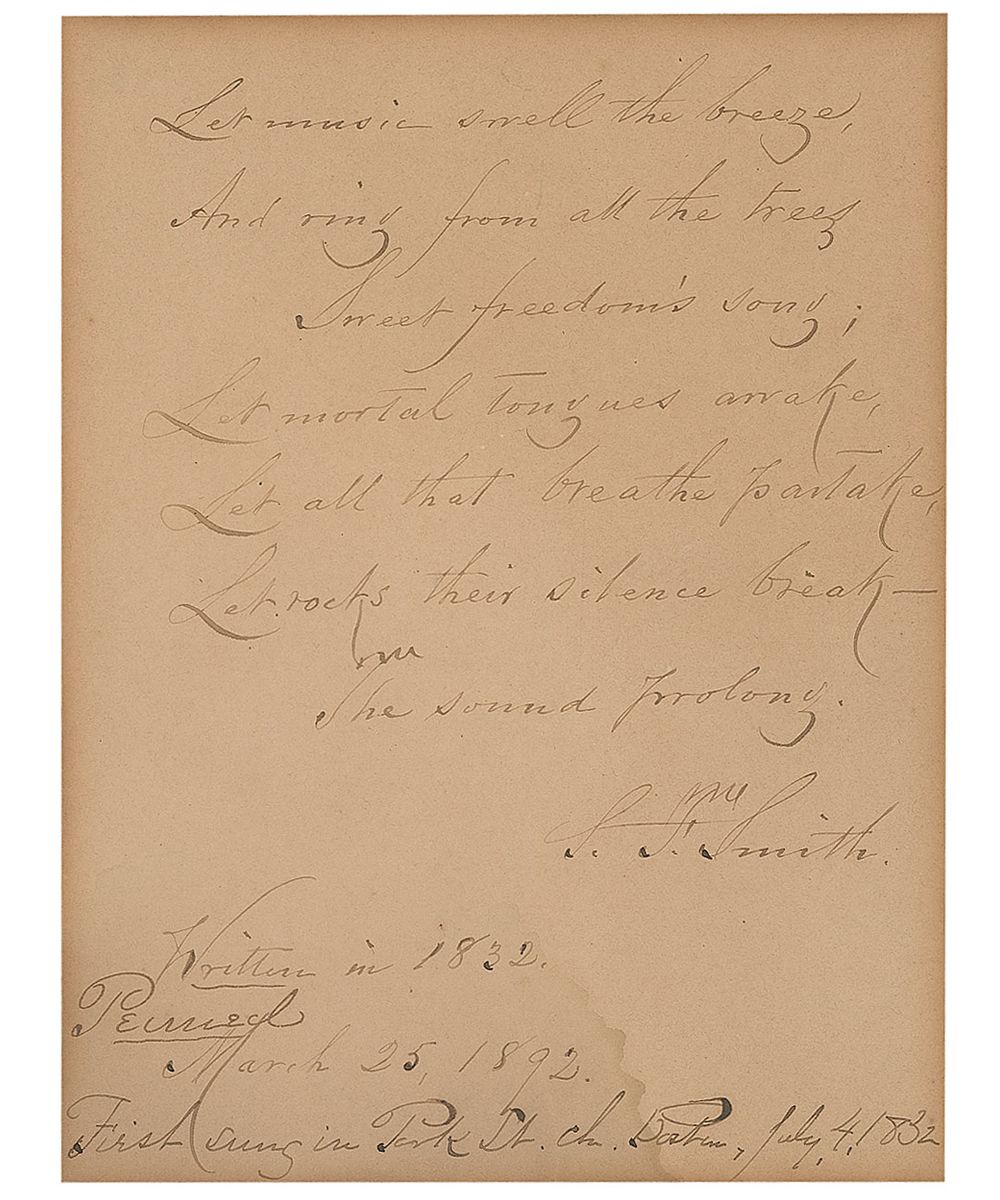 Let music swell the breeze,
And ring from all the trees
Sweet freedom's song;
Let mortal tongues awake,
Let all that breathe partake,
Let rocks their silence break—
The sound prolong.
S. F. Smith.
Written in 1832.
Penned
March 25, 1892.
First sung in Park St. ch. Boston, July, 4, 1832